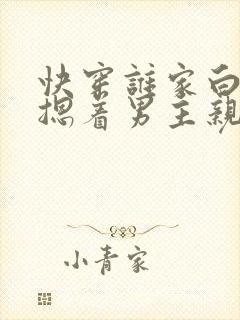 快穿誰家白
摁着男主親
小青家